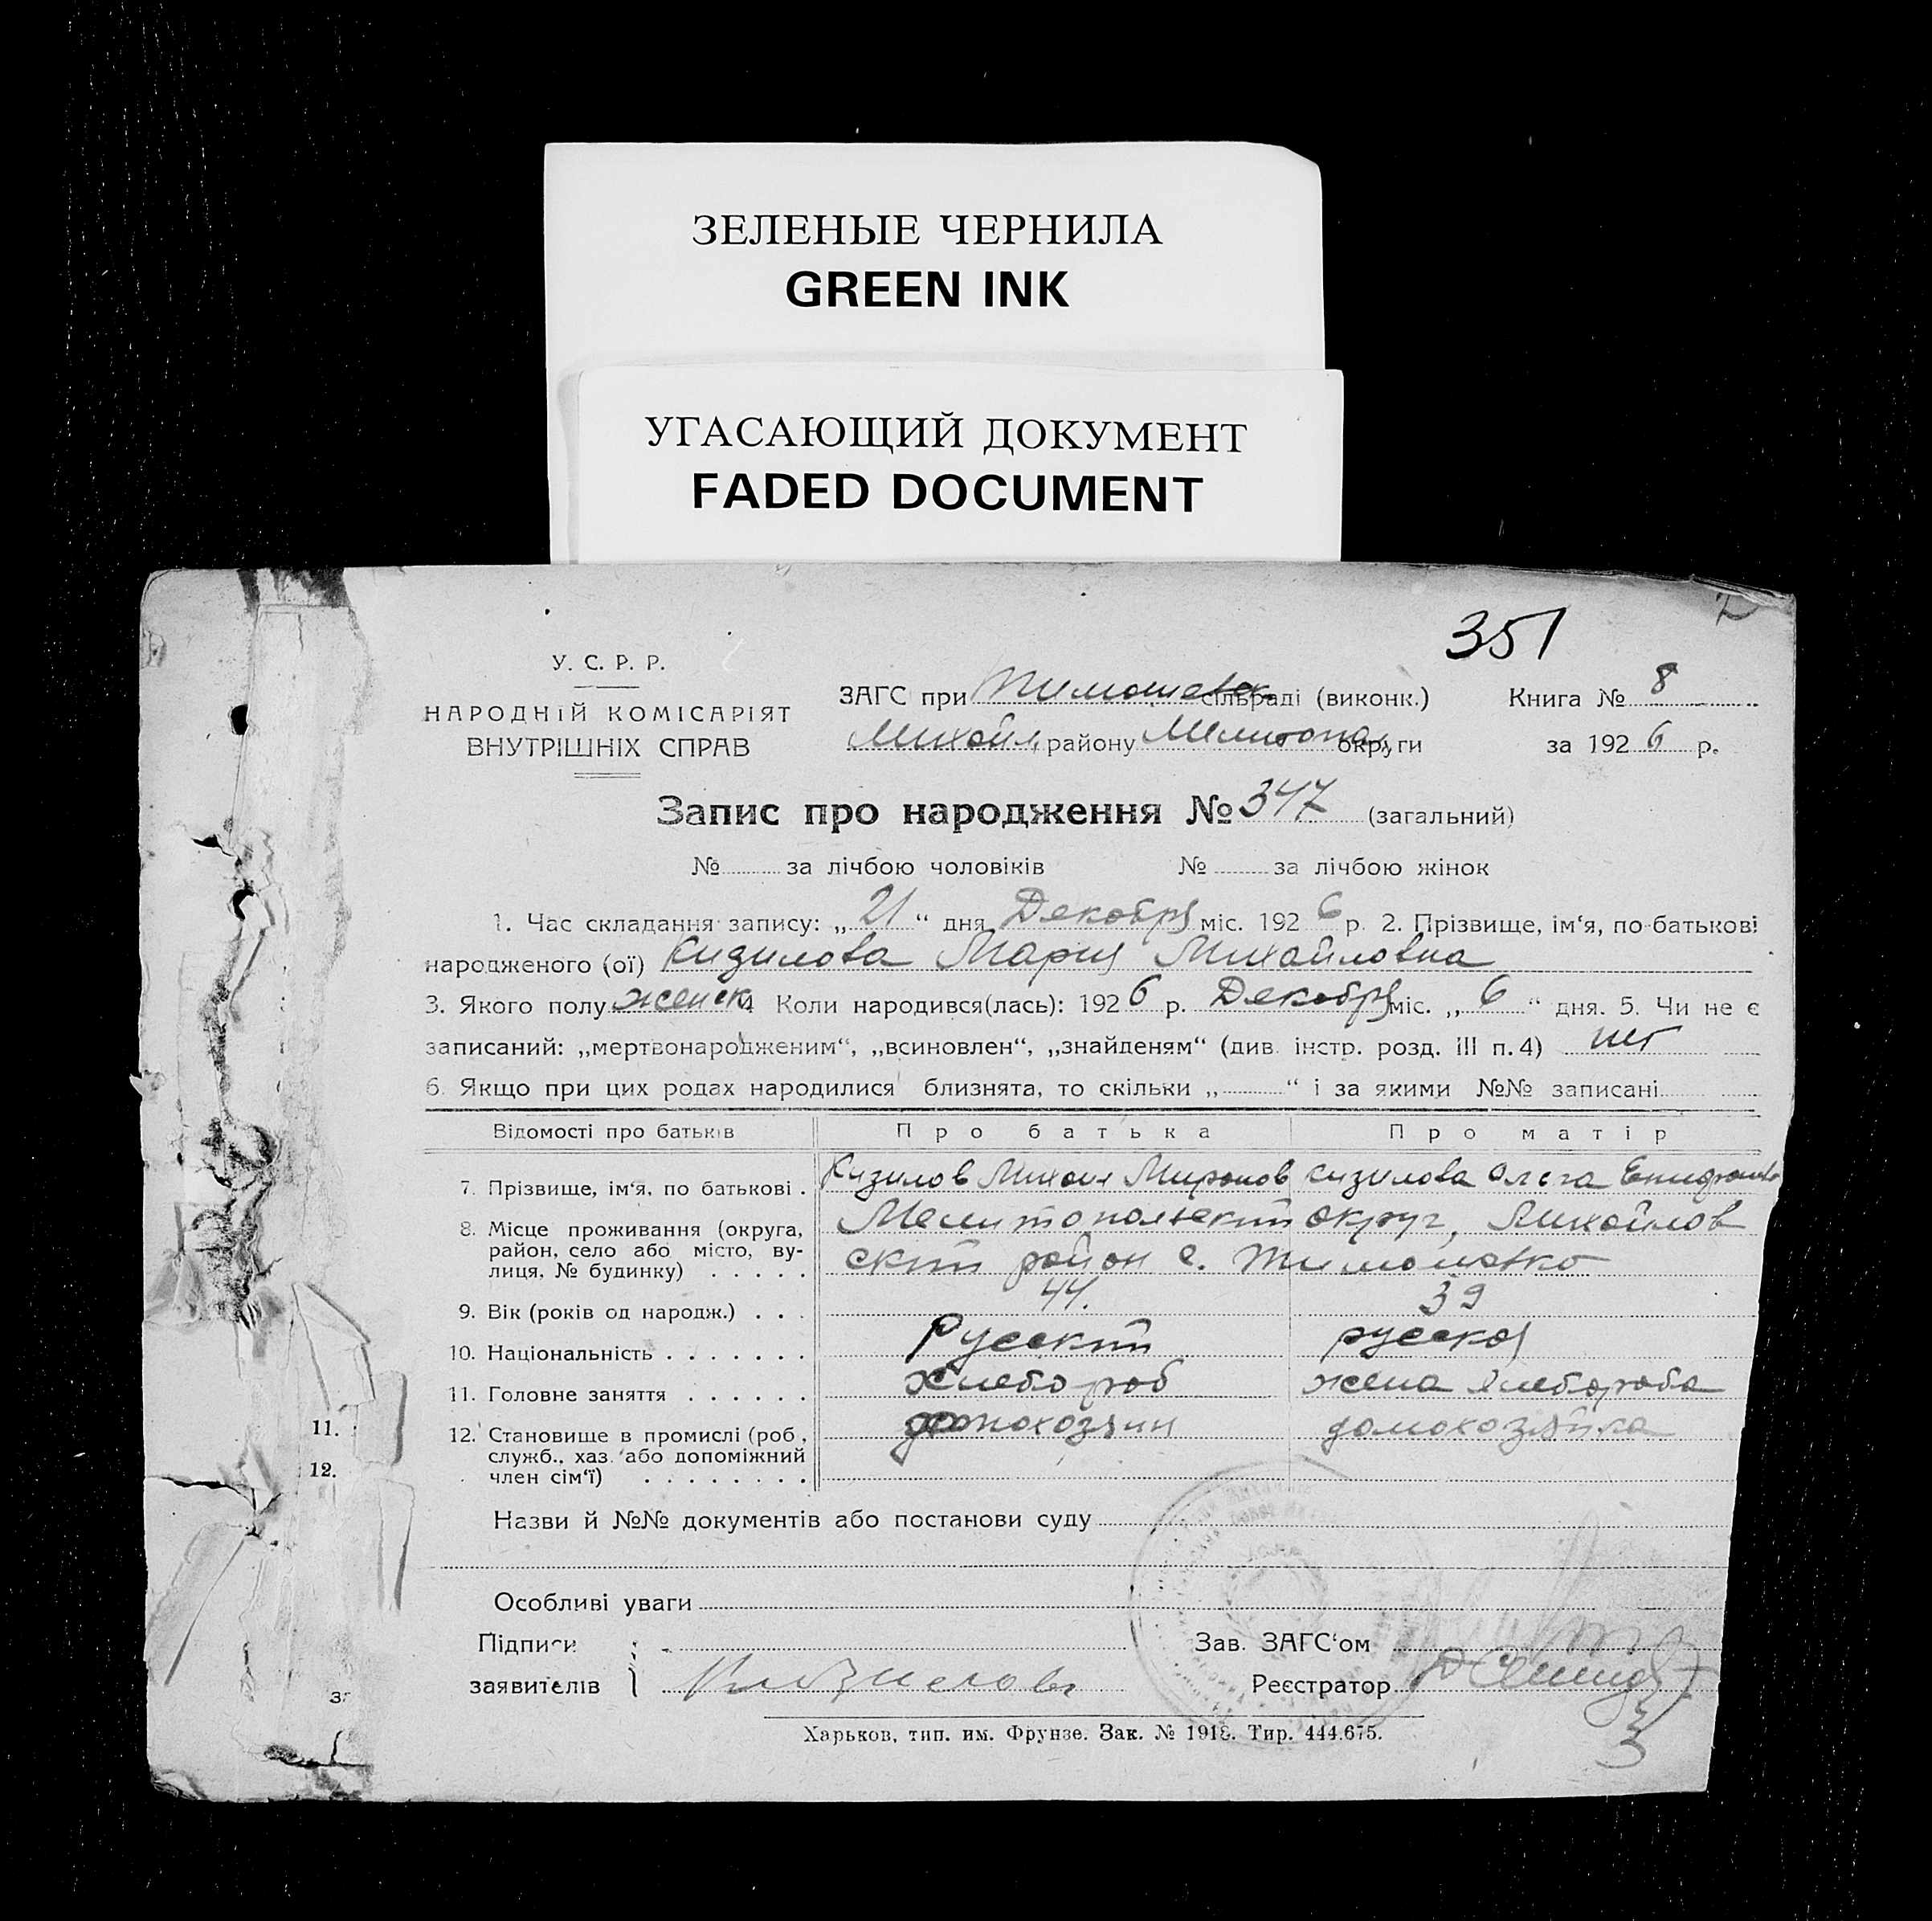 ЗЕЛЕНЫЕ ЧЕРНИЛА
GREEN INK
УГАСАЮЩИЙ ДОКУМЕНТ
FADED DOCUMENT
351
У. С. Р. Р.
НАРОДНІЙ КОМІСАРІЯТ
ВНУТРІШНІХ СПРАВ
ЗАГС при Тимошевск. сільраді (виконк.) Книга № 8
Михайл. району Мелитопол. округи за 1926 р.
Запис про народження № 347 (загальний)
№ за лічбою чоловіків № за лічбою жінок
1. Час складання запису: „21“ дня Декабря міс. 1926 р. 2. Прізвище, ім‘я, по-батькові
народженого (ої) Кизилова Мария Михайловна
3. Якого полу женск 4 Коли народився(лась): 1926 р. Декабря міс. „6“ дня. 5. Чи не є
записаний: „мертвонародженим“, „всиновлен“, „знайденям“ (див. інстр. розд. III п. 4) нет
6. Якщо при цих родах народилися близнята, то скільки „ “ і за якими №№ записані
Відомості про батьків Про батька Про матір
7. Прізвище, ім‘я, по батькові . Кизилов Михаил Миронов Кизилова Ольга
8. Місце проживання (округа, район, село або місто, вулиця, № будинку) . . . . . Мелитопольский округ, Михайлов
ский район с. Тимошевка
9. Вік (років од народж.) . . . 44. 39
10. Національність . . . . . . . Русский русская
11. Головне заняття . . . . . . Хлебороб жена хлебороба
12. Становище в промислі (роб., служб., хаз. або допоміжний член сім‘ї) . . . . . . . . домохозяин домохозяйка
11.
12.
Назви й №№ документів або постанови суду
Особливі уваги
Підписи
заявителів
Зав. ЗАГС‘ом
Реєстратор
Харьков, тип. им. Фрунзе. Зак. № 1918. Тир. 444.675.